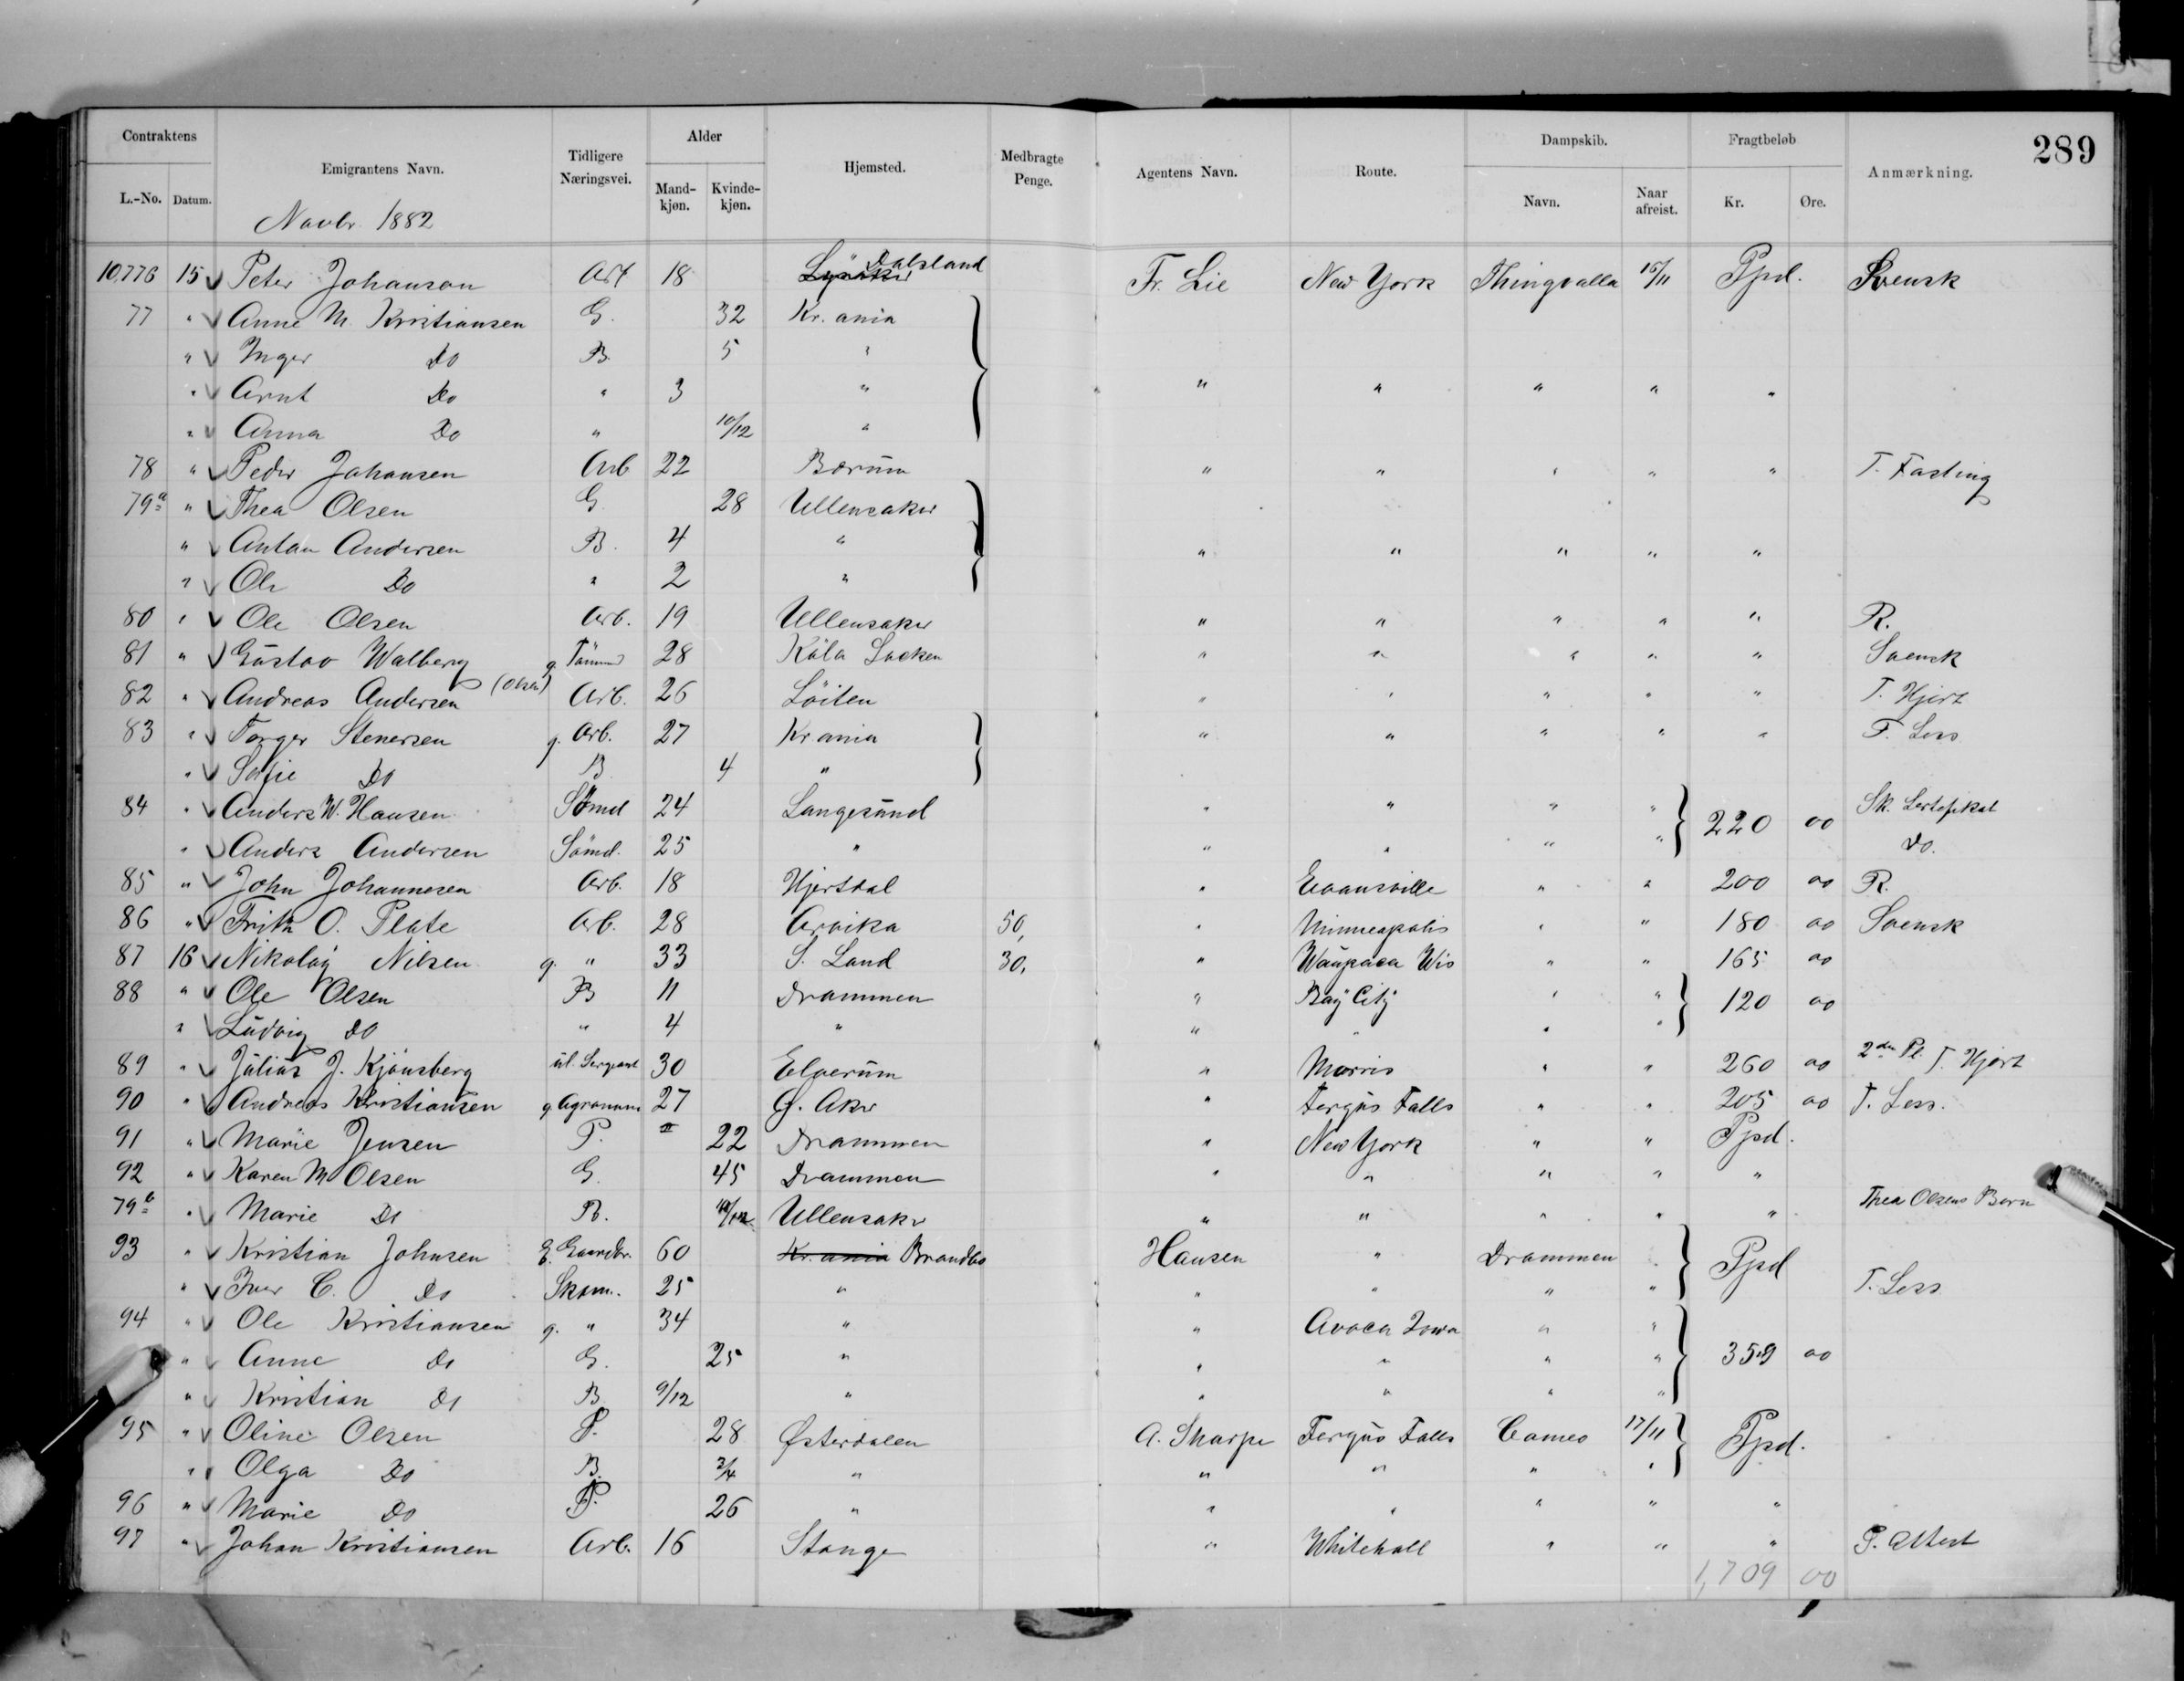 289
Contraktens Emigrantens Navn. Tidligere Næringsvei. Alder Hjemsted. Medbragte Penge. Agentens Navn. Route. Dampskib. Fragtbeløb Anmærkning.
L.-No. Datum. Mand-kjøn. Kvinde-kjøn. Navn. Naar afreist. Kr. Øre.
Novbr 1882
10,776 15 Peter Johanson Arb 18 Dalsland Fr. Lie New York Thingvalla 15/11 Ppd. Svensk
77 " Anne M. Kristiansen G. 32 Kr.ania
" Inger Do B. 5 "
" Arnt Do " 3 " " " " " "
" Anna Do " 10/12 "
78 " Peder Johansen Arb 22 Bærum " " " " " T. Fasting
79a " Thea Olsen G. 28 Ullensaker
" Anton Andersen B. 4 " " " " " "
" Ole Do " 2 "
80 " Ole Olsen Arb. 19 Ullensaker " " " " " R.
81 " Gustav Walberg g. Tømmd 28 Köla Socken " " " " " Svensk
82 " Andreas Andersen (Olsen) Arb. 26 Löiten " " " " " T. Hjort
83 " Torger Stenersen g. Arb. 27 Krania " " " " " T. Less
" Sofie Do B. 4 "
84 " Anders W. Hansen Sömd 24 Langesund " " " " 220 00 Sk. Sertifikat
" Anders Andersen Sömd. 25 " " " " " Do.
85 " John Johannesen Arb. 18 Hjertdal " Evansville " " 200 00 R.
86 " Frith O. Plate Arb. 28 Arvika 50, " Minneapolis " " 180 00 Svensk
87 16 Nikolaj Nilsen g. " 33 S. Land 30, " Waupaca Wis " " 165 00
88 " Ole Olsen B 11 Drammen " Bay City " " 120 00
" Ludvig Do " 4 " " " " "
89 " Julius J. Kjönsberg ul. Sergeant 30 Elverum " Morris " " 260 00 2den Pl. T. Hjort
90 " Andreas Kristiansen g Agronom 27 Ø. Aker " Fergus Falls " " 205 00 T. Less.
91 " Marie Jensen P. 22 Drammen " New York " " Ppd.
92 " Karen M Olsen G. 45 Drammen " " " " "
79b " Marie Do B. Ullensaker " " " " " Thea Olsens Barn
93 " Kristian Johnsen E. Gaardbr. 60 Kr.ania Brandbo Hansen " Drammen " Ppd
" Iver C. Do Skom. 25 " " " " " T. Less
94 " Ole Kristiansen g. " 34 " " Avoca Iowa " " 359 00
" Anne Do G. 25 " " " " "
" Kristian Do B 9/12 " " " " "
95 " Oline Olsen P. 28 Østerdalen A. Sharpe Fergus Falls Cameo 17/11 Ppd.
" Olga Do B. 3/4 " " " " "
96 " Marie Do P. 26 " " " " " "
97 " Johan Kristiansen Arb. 16 Stange " Whitehall " " " P. Attest
1,709 00